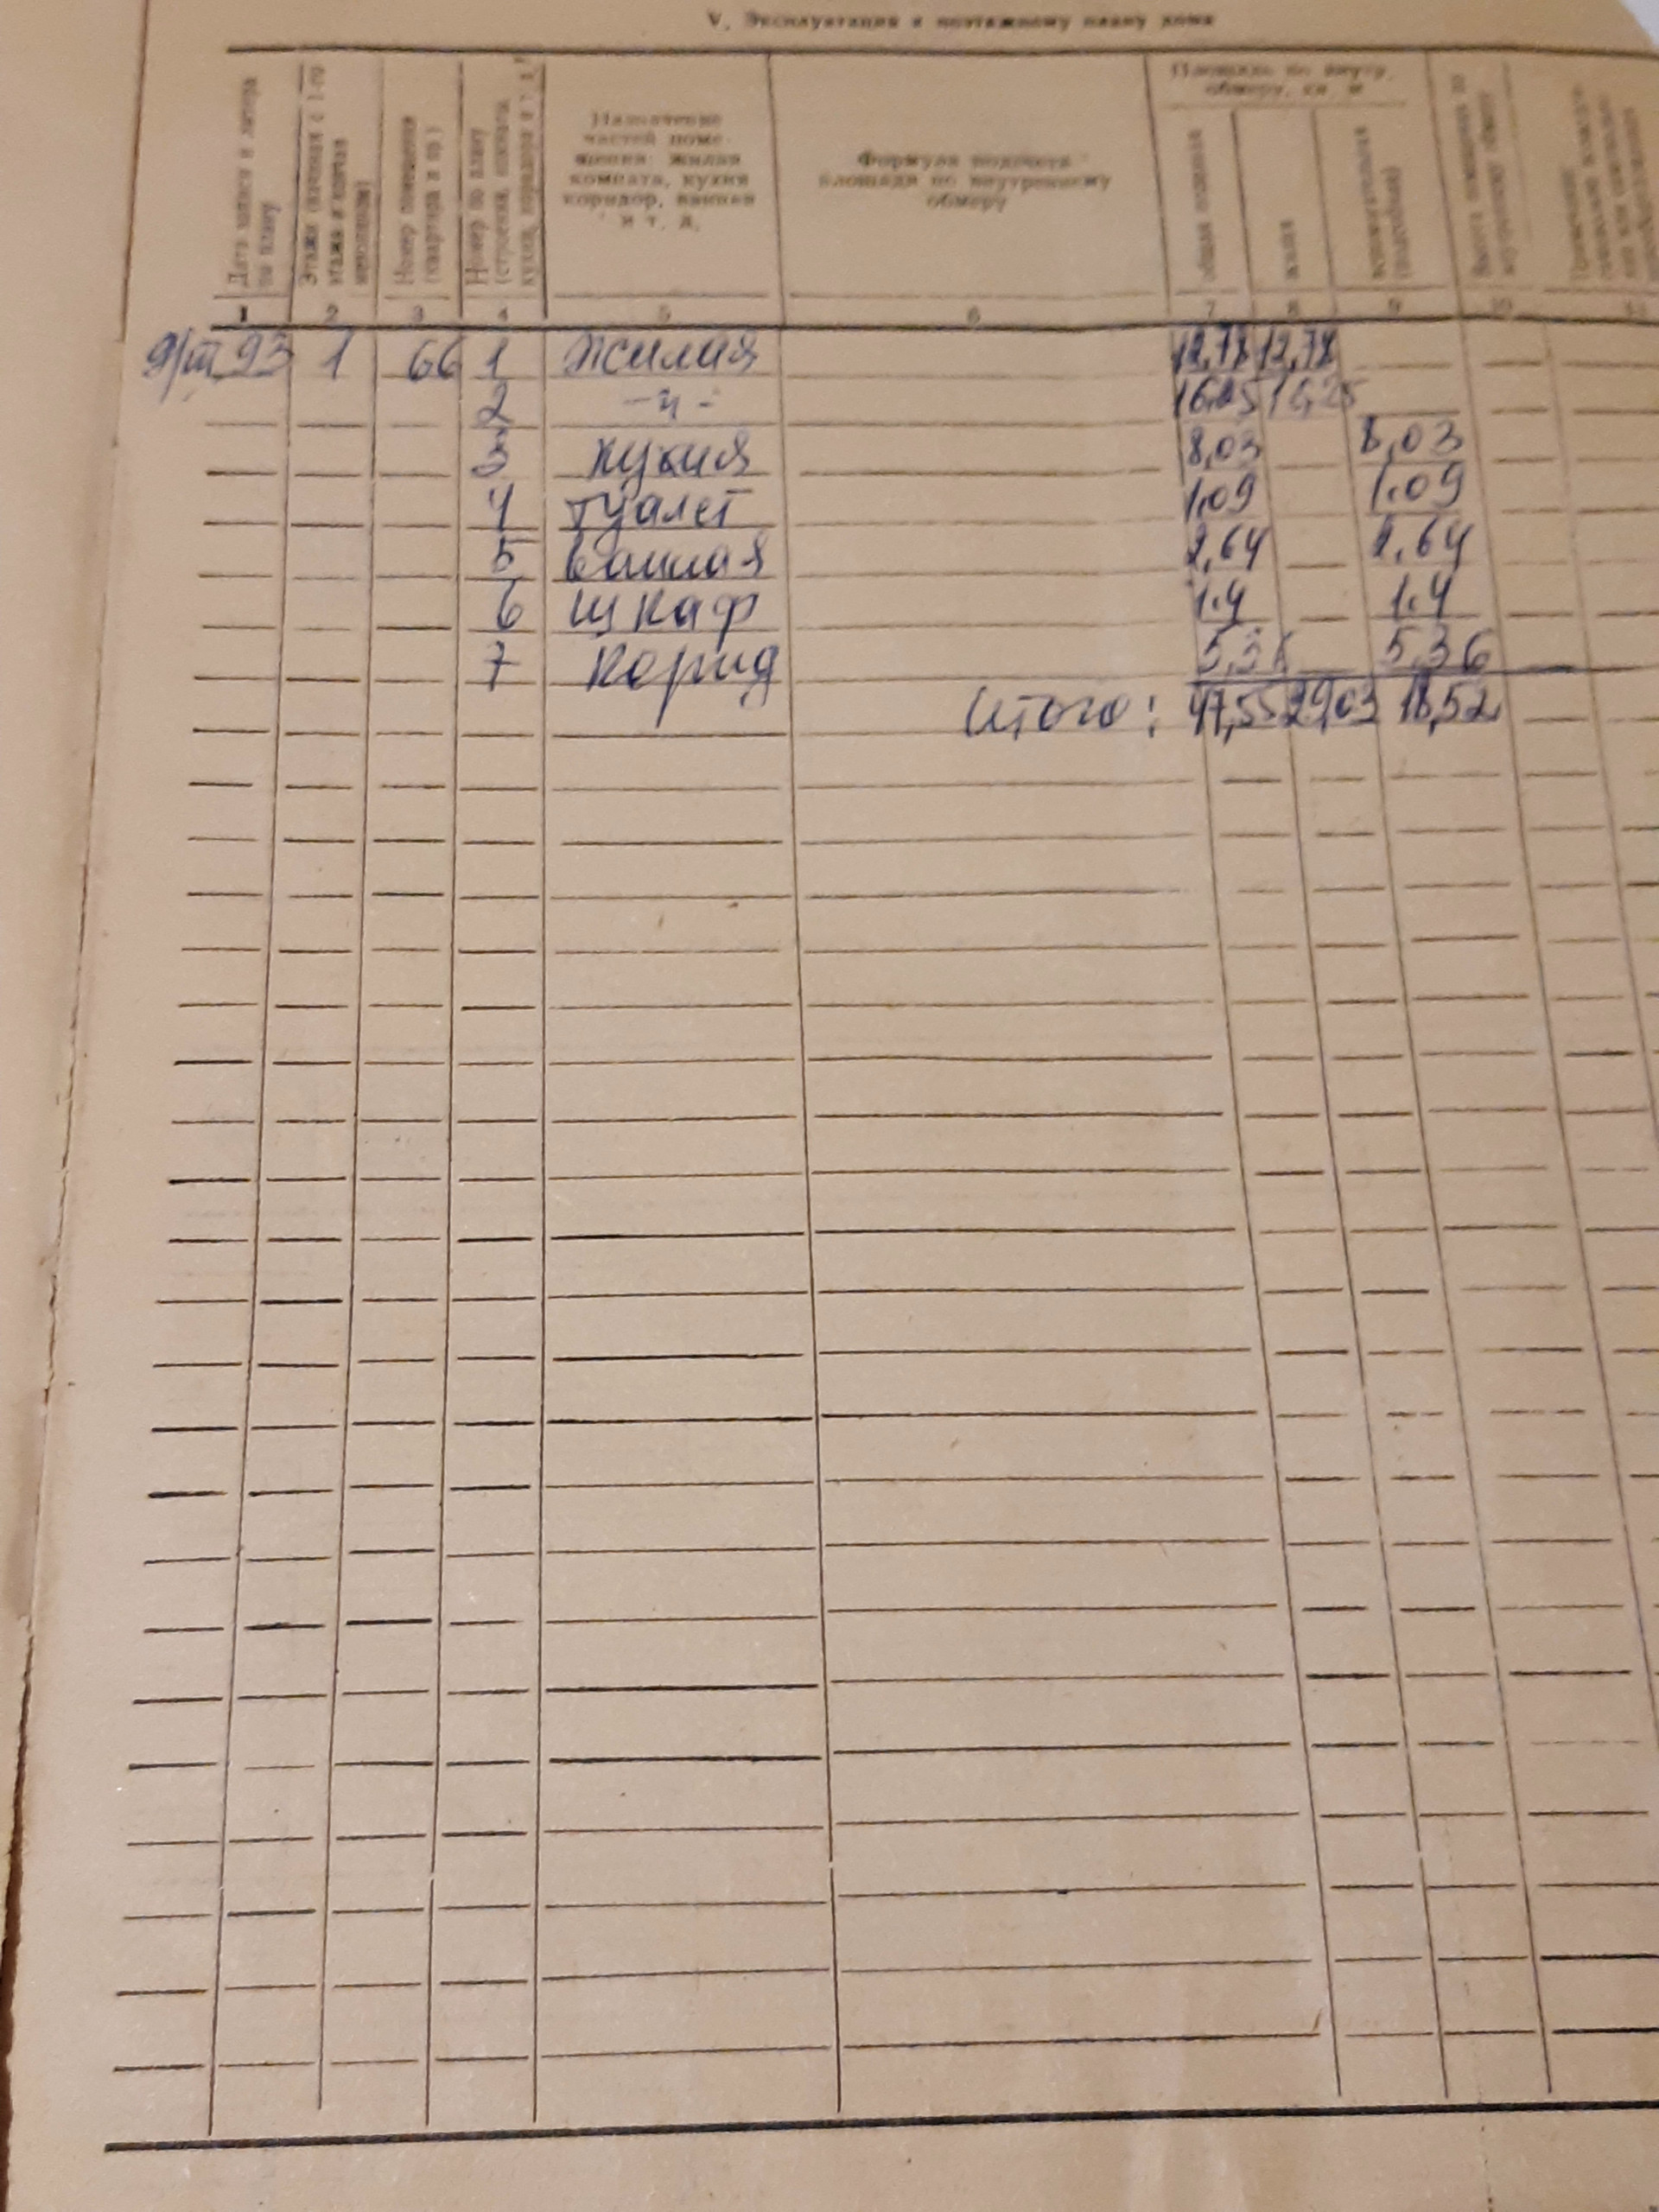 V. Эксплуатация к поэтажному плану дома
Дата записи и литера
по плану
Этажи (начиная с 1-го
этажа и кончая
мезонином)
Номер помещения
(квартира и пр.)
Номер по плану
(строения, комнаты,
кухни, коридора и т. д.)
Назначение
частей поме-
щения: жилая
комната, кухня
коридор, ванная
и т. д.
Формула подсчета
площади по внутреннему
обмеру
Площадь по внутр.
обмеру, кв. м
общая площадь
жилая
вспомогательная
(подсобная)
Высота помещения по
внутреннему обмеру
1 2 3 4 5 6 7 8 9 10 11
93 1 66 1 Жилая 12,78 12,78
2 -"- 16,25 16,25
3 кухня 8,03 8,03
4 туалет 1.09 1.09
5 ванная 2,64 2,64
6 шкаф 1.4 1.4
7 корид 5,36 5,36
Итого: 47,55 29,03 18,52